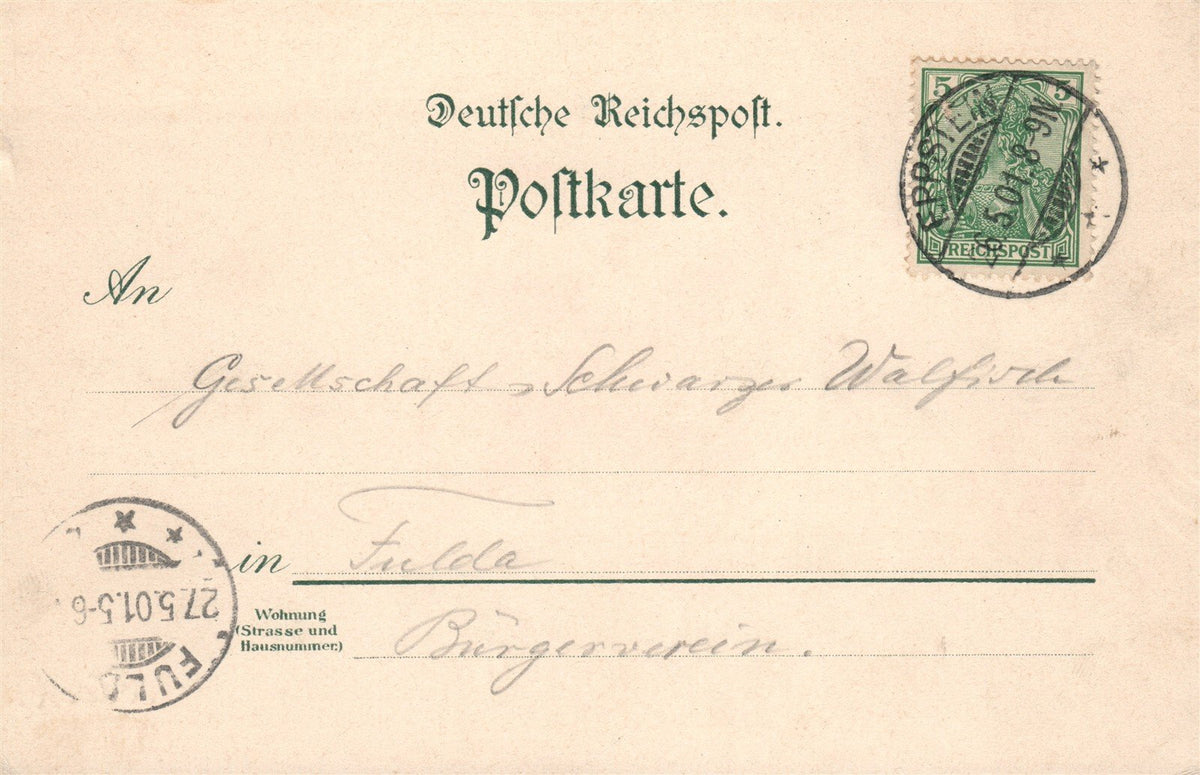 Deutsche Reichspost.
Postkarte.
5 5
REICHSPOST
EPPSTEIN
26.5.01. 8-9N.
An
Gesellschaft „Schwarzer Walfisch
in Fulda
Wohnung
(Strasse und
Hausnummer.)
Bürgerverein.
27.5.01.5-6
FULD